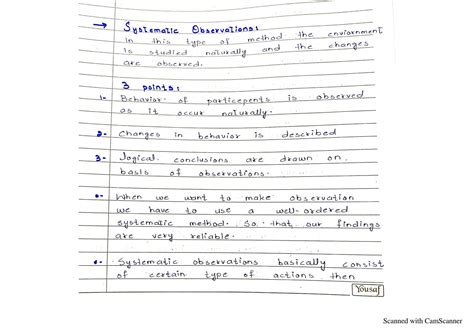 → Systematic Observations:
In this type of method the enviornment
is studied naturally and the changes
are observed.
3 points:
1- Behavior of particepents is observed
as it occur naturally.
2- Changes in behavior is described
3- Logical conclusions are drawn on
basis of observations.
•- When we want to make observation
we have to use a well-ordered
systematic method. So that our findings
are very reliable.
•- Systematic observations basically consist
of certain type of actions then
Yousaf
Scanned with CamScanner